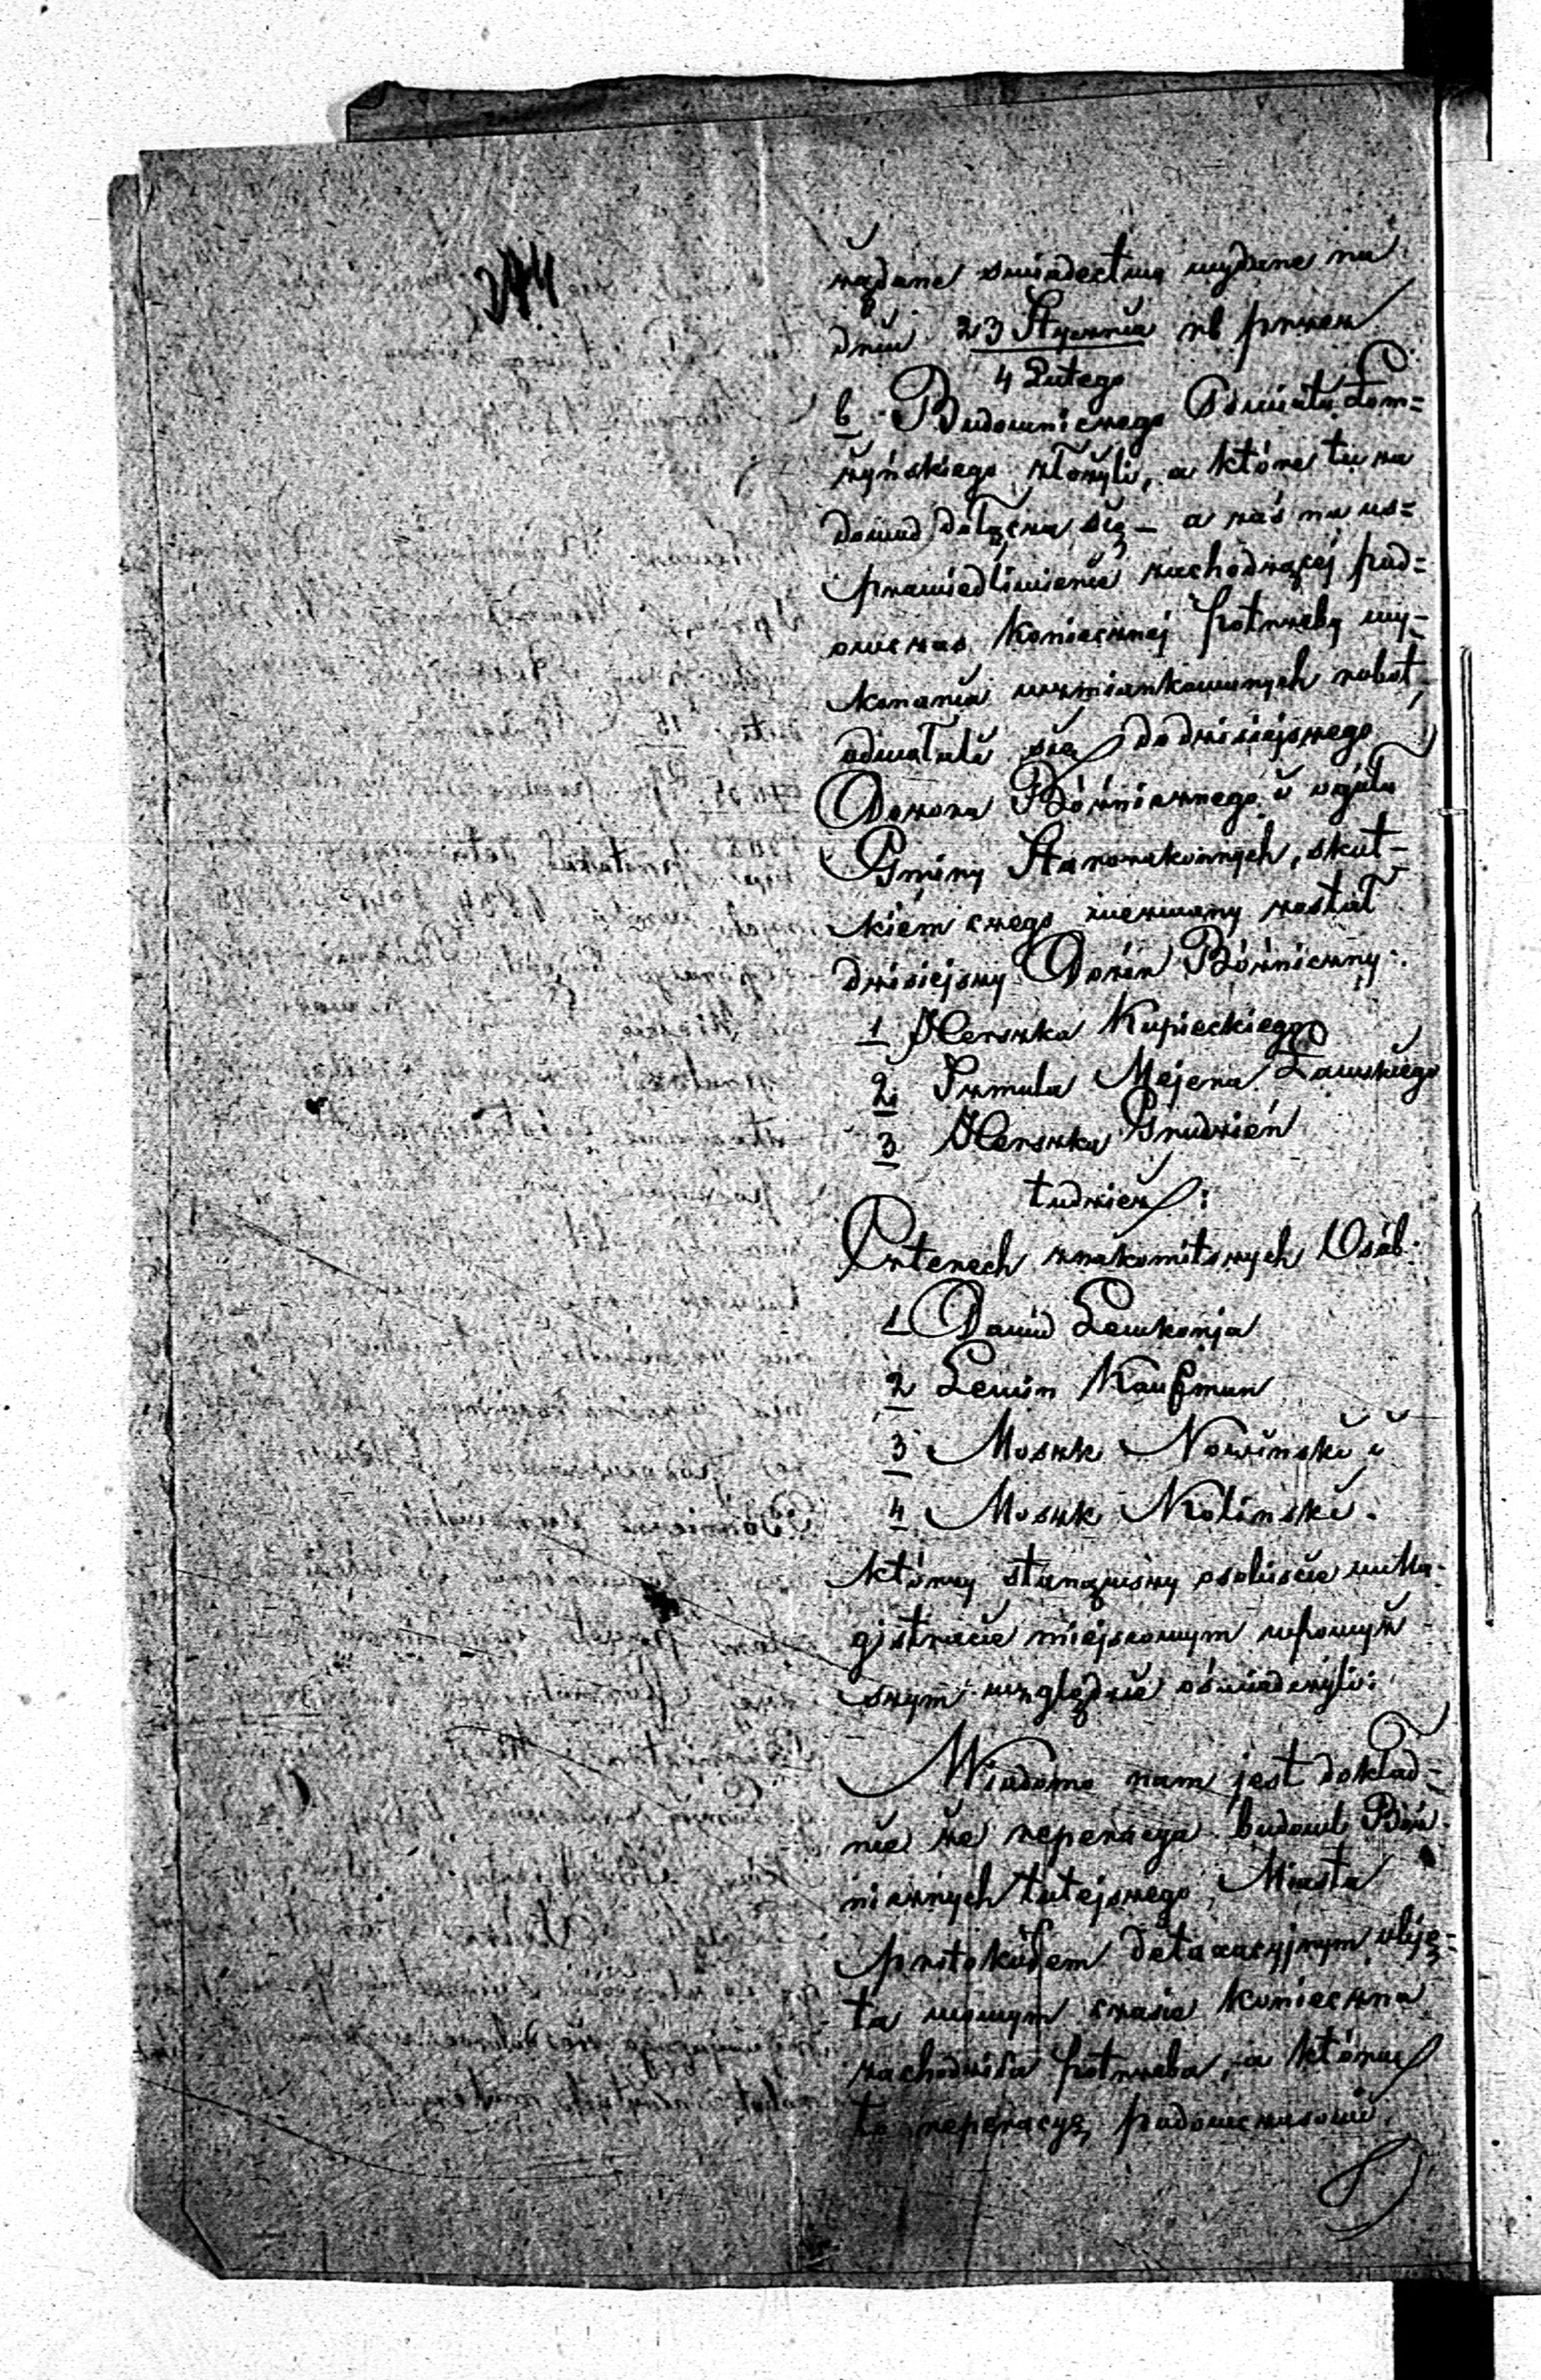 244
żądane swiadectwa wydane na
dniu 23 Stycznia rb przez
4 Lutego
b. Budowniczego Powiatu Łom=
żyńskiego złożyli, a które tu na
dowud dołącza się — a zaś na us=
prawiedliwienie zachodzącéj pod=
owczas koniecznéj potrzeby wy=
konania wzmiankowanych robot,
odwołali się do dzisiejszego
Dozoru Bóżnicznego i ogułu
Gminy Starozakonnych, skut=
kiem czego wezwany został
dzisiejszy Dozór Bóżniczny:
1 Herszka Kupieckiego
2. Szmula Mejera Ławskiego
3 Herszka Grudzień
tudzież:
Czterech znakomitszych Osób:
1 Dawid Lewkonja
2 Lewin Kaufman
3 Moszk Nowinski i
4 Moszk Kolinski.
którzy stanąwszy osobiscie w Ma=
gistracie miejscowym w powyż
szym względzie oświadczyli:
Wiadomo nam jest dokład=
nie że reperacya budowli Bóż=
nicznych tutejszego Miasta
protokułem detaxacyjnym obję=
ta w owym czasie konieczna
zachodziła potrzeba, a którą
to reperacyę podowczasowi